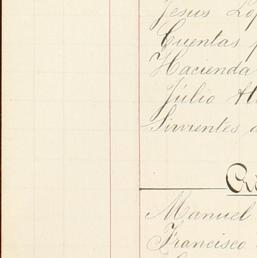 Jesus Lop
Cuentas p
Hacienda
Julio Al
Sirvientes d
Cre
Manuel
Francisco